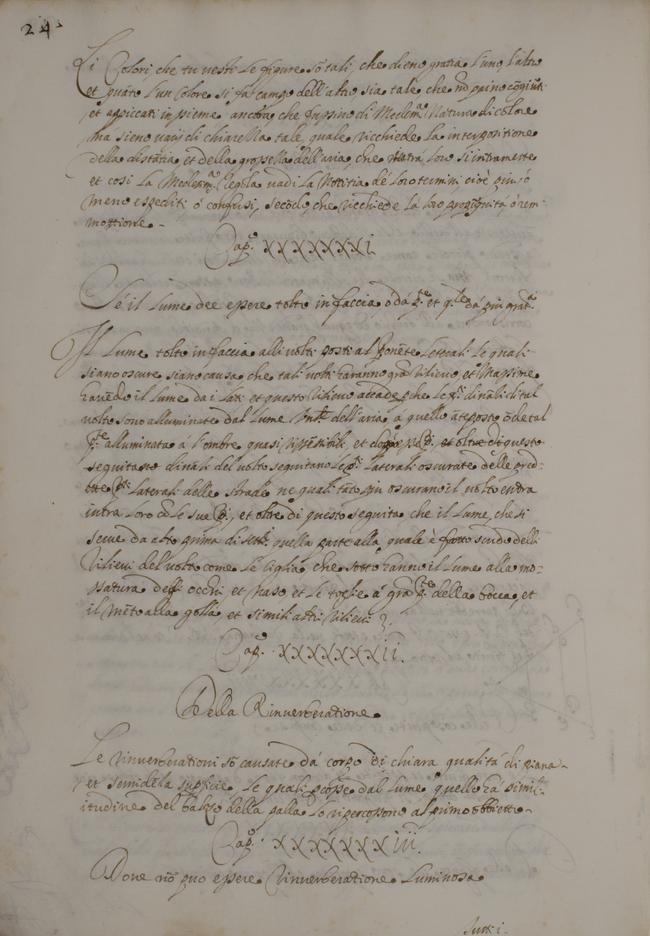 24.
Li Colori, che tu vesti le figure só tali, che dieno gratia l'uno, l'altro
et quãto l'un Colore si fa campo dell'altro sia tale che nõ paino cõgiũti
et appiccati insieme ancora che fussino di Medesm.ª Natura di colore
ma sieno varij di chiarezza tale, quale richiede la interpositione
della distãtia et della grossezza dell'aria, che infra loro si intramette
et cosi la Medesm.ª Regola vadi la Notitia de' loro termini cioè piu ó
meno espediti ó confusi, secõdo, che richiede la loro propinquità, ó rem-
mottione.
Cap.º XXXXXXXI.
Sé il lume dee essere tolto in faccia, ó da p.te et q.le dá piu grat.ª
Il lume tolto in faccia alli volti posti al Parẽte laterali le quali
siano oscure, siano causa, che tali volti haranno grã rilievo et Massime
havẽdo il lume da i lati et questo rilievo accade che le p.ti dinãzi di tal
volto sono alluminate dal lume dell'aria, a quello ãteposto õde tal
p.te alluminata á l'ombre quasi et oltre di questo
seguitano dinãzi del volto seguitano le p.ti laterali oscurate delle pred-
ette p.ti laterali delle strade ne quali tãto piu oscurano il volto
intra loro cõ le sue p.ti, et oltre di questo seguita che il lume, che si
da alto priva di quella parte alla quale è fatto scudo delli
rilievi del volto come le ciglia che sotto hanno il lume alla in-
cassatura degli occhi et naso et le á grã p.te della bocca, et
il mẽto alla gola et simili altri rilievi
Cap.º XXXXXXXII.
Della Rinverberatione
Le rinverberationi sõ causate da corpo di chiara qualità di piana-
et semidẽsa suptficie le quali pcosse dal lume quello há simil-
itudine del balzo della palla lo ripercossono al primo obbietto-
Cap.º XXXXXXXIII.
Dove nõ puo essere rinverberatione luminosa.
Tutti i